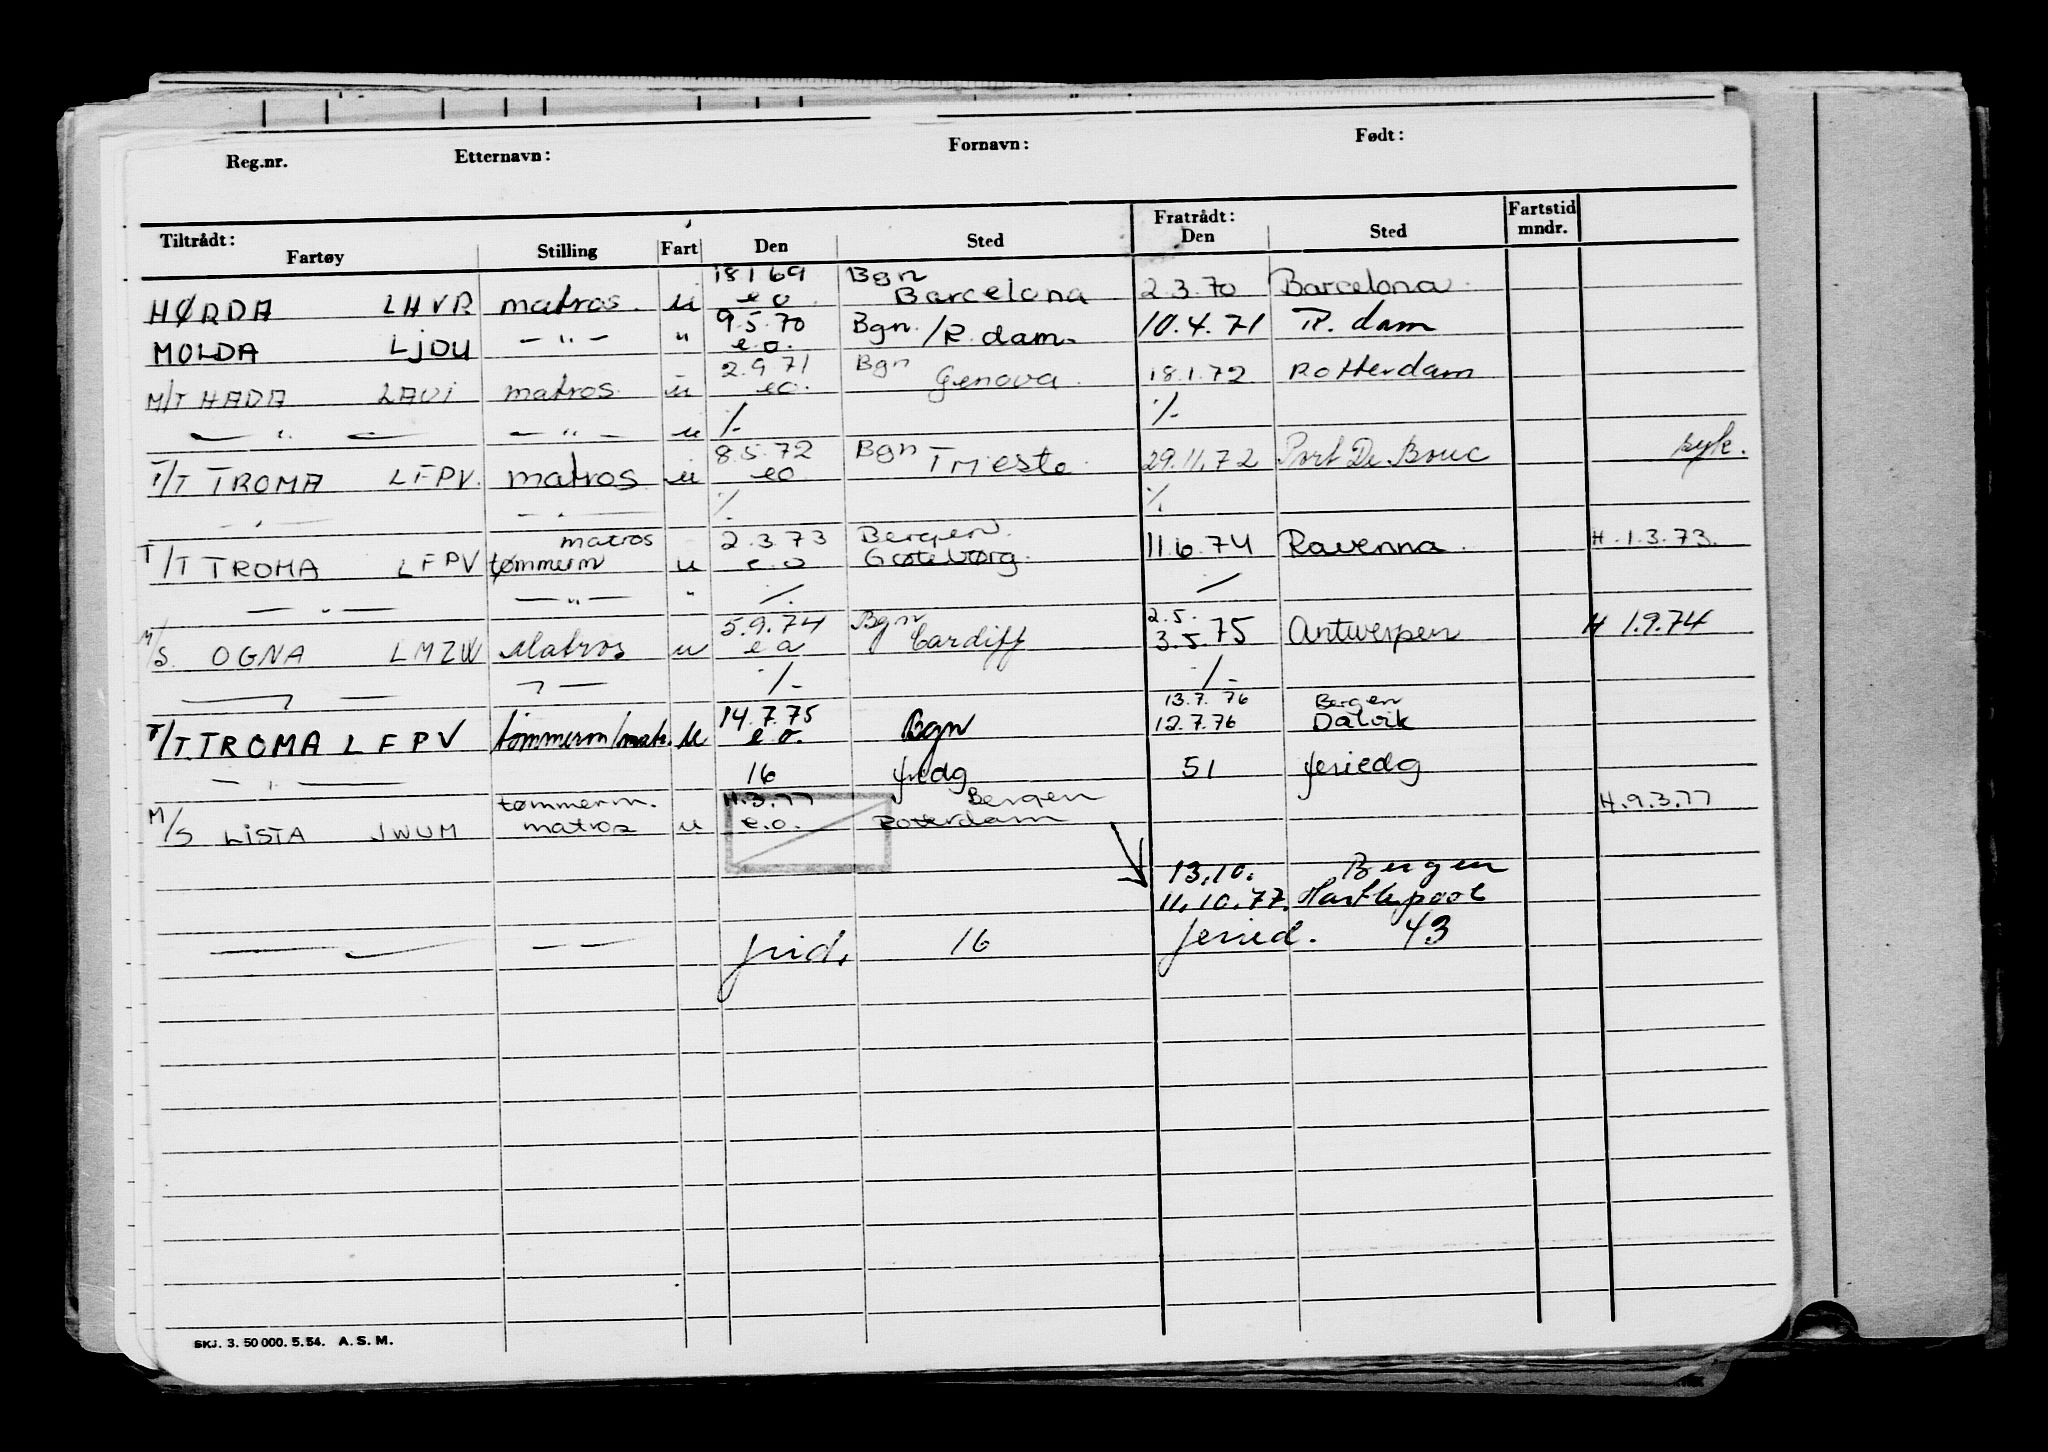 Reg.nr. Etternavn: Fornavn: Født:
Tiltrådt: Fratrådt: Fartstid
Fartøy Stilling Fart Den Sted Den Sted mndr.
18 1 69 Bgn
HØRDA LHVR matros. u e o. Barcelona 2.3.70 Barcelona.
9.5.70
MOLDA LJDU — " — " e.o. Bgn. / R. dam. 10.4.71 R. dam
2.9.71 Bgn
M/T HADA LAVI matros. u eo. Genova. 18.1.72 Rotterdam
— " — — " — u ·/. ·/.
8.5.72 Bgn
T/T TROMA LFPV. matros u eo. Trieste. 29.11.72 Port De. Bouc syk.
— " — — " — ·/. ·/.
matros 2.3.73 Bergen.
T/T TROMA LFPV tømmerm u e.o Gøteborg. 11.6.74 Ravenna. H.1.3.73.
— " — — " — " ·/. ·/.
5.9.74 Bgn 2.5.
M/S. OGNA LMZW Matros u e o Cardiff 3.5.75 Antwerpen H 1.9.74
— " — — " — ·/. ·/.
14.7.75 13.7.76 Bergen
T/T. TROMA LFPV tømmerm/matr. u e.o. Bgn 12.7.76 Dalvik
— " — 16 fridg 51 feriedg
tømmerm. 11.3.77 Bergen H.9.3.77
M/S LISTA JWUM matros u e.o. Rotterdam
13.10. Bergen
11.10.77. Hartlepool
— " — — — frid. 16 feried. 43
SKJ. 3. 50 000. 5.54. A. S. M.